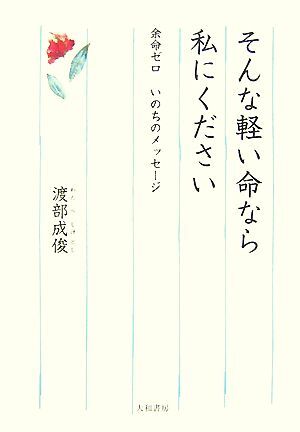 そんな軽い命なら
私にください
余命ゼロ　いのちのメッセージ
渡部成俊
わたべしげとし
大和書房